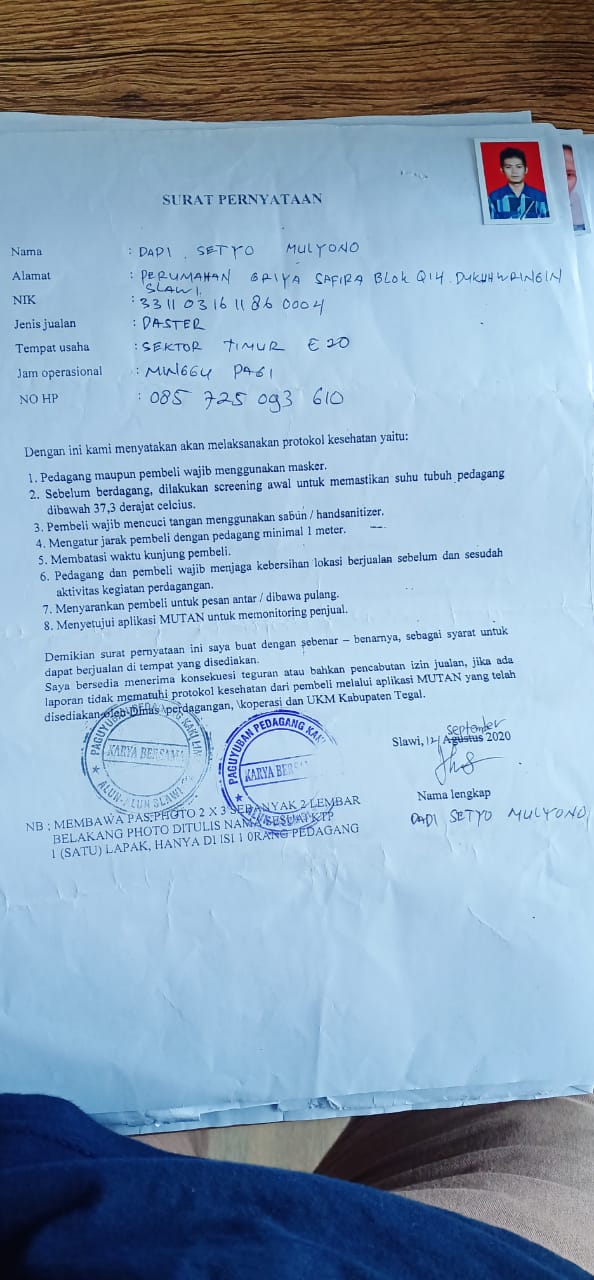 SURAT PERNYATAAN
Nama : DADI SETYO MULYONO
Alamat : PERUMAHAN GRIYA SAFIRA BLOK Q14. DUKUHWRINGIN
SLAWI.
NIK : 3311031611860004
Jenis jualan : DASTER
Tempat usaha : SEKTOR TIMUR E 20
Jam operasional : MINGGU PAGI
NO HP : 085 725 093 610
Dengan ini kami menyatakan akan melaksanakan protokol kesehatan yaitu:
1. Pedagang maupun pembeli wajib menggunakan masker.
2. Sebelum berdagang, dilakukan screening awal untuk memastikan suhu tubuh pedagang
dibawah 37,3 derajat celcius.
3. Pembeli wajib mencuci tangan menggunakan sabun / handsanitizer.
4. Mengatur jarak pembeli dengan pedagang minimal 1 meter.
5. Membatasi waktu kunjung pembeli.
6. Pedagang dan pembeli wajib menjaga kebersihan lokasi berjualan sebelum dan sesudah
aktivitas kegiatan perdagangan.
7. Menyarankan pembeli untuk pesan antar / dibawa pulang.
8. Menyetujui aplikasi MUTAN untuk memonitoring penjual.
Demikian surat pernyataan ini saya buat dengan sebenar – benarnya, sebagai syarat untuk
dapat berjualan di tempat yang disediakan.
Saya bersedia menerima konsekuesi teguran atau bahkan pencabutan izin jualan, jika ada
laporan tidak mematuhi protokol kesehatan dari pembeli melalui aplikasi MUTAN yang telah
disediakan oleh Dinas perdagangan, \koperasi dan UKM Kabupaten Tegal.
PAGUYUBAN PEDAGANG KAKI LIMA
KARYA BERSAMA
ALUN-ALUN SLAWI
PAGUYUBAN PEDAGANG KAKI
KARYA BERSA
ALUN-ALUN
september
Slawi, 12 Agustus 2020
Nama lengkap
DADI SETYO MULYONO
NB : MEMBAWA PAS PHOTO 2 X 3 SEBANYAK 2 LEMBAR
BELAKANG PHOTO DITULIS NAMA SESUAI KTP
1 (SATU) LAPAK, HANYA DI ISI 1 0RANG PEDAGANG